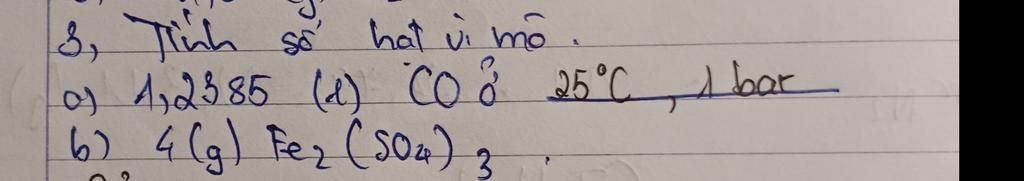 3, Tính số hạt vi mô.
a) 1,2385 (l) CO ở 25°C, 1 bar
b) 4(g) Fe2(SO4)3.